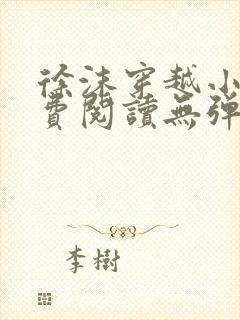 徐沫穿越小
費閱讀無彈
李樹